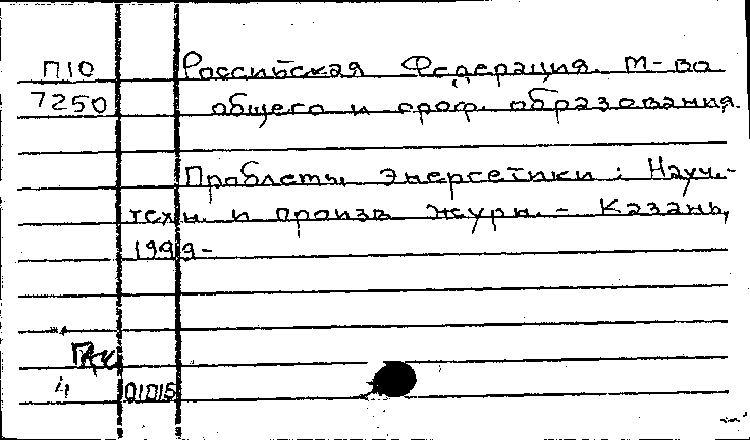 П10 Российская Федерация. М-во
7250 общего и проф. образования.
Проблемы энергетики : Науч.-
техн. и произв. журн. - Казань,
1999-
4 01015